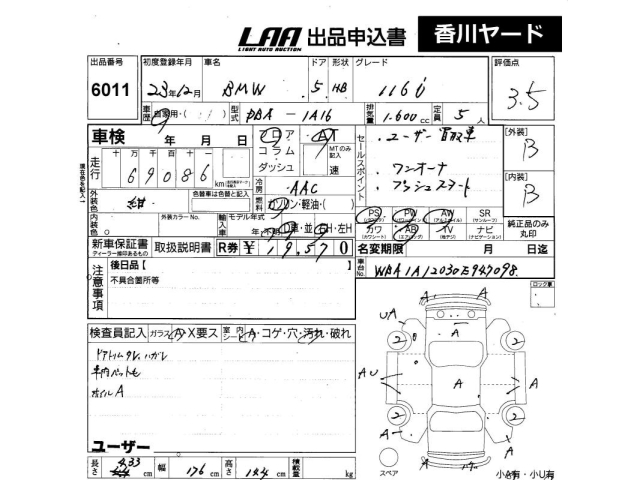 LAA 出品申込書 香川ヤード
LIGHT AUTO AUCTION
出品番号 初度登録年月 車名 ドア 形状 グレード 評価点
6011 23年12月 BMW 5 HB 116i 3.5
車歴 自家用・( ) 型式 DBA-1A16 排気量 1.600cc 定員 5人
車検 年 月 日 フロア AT セールスポイント ・ユーザー買取車 [外装] B
走行 十万 万 千 百 十 一 コラム MTのみ記入
69086 km ダッシュ 速 ・ワンオーナー [内装] B
現在色を記入
外装色 紺 色替車は色替と記入 冷房 AAC ・プッシュスタート
燃料 ガソリン・軽油・( )
内装色 外装カラーNo. 輸入車 モデル年式 PS PW AW SR 純正品のみ丸印
年 D車・並 左H・右H カワ AB TV ナビ
新車保証書 取扱説明書 R券 ¥19,570 名変期限 月 日迄
ディーラー捺印あるもの
注意事項 後日品【 】 車台No. WBA1A12030E947098
不具合箇所等
検査員記入 ガラス A・X要ス 室内 シート A・コゲ・穴・汚れ・破れ
ホイルA
ユーザー
長さ 433 cm 幅 176 cm 高さ 144 cm 積載量 kg
A
A
UA A
2 2
AU A A
2 2
A A
スペア 小A有・小U有